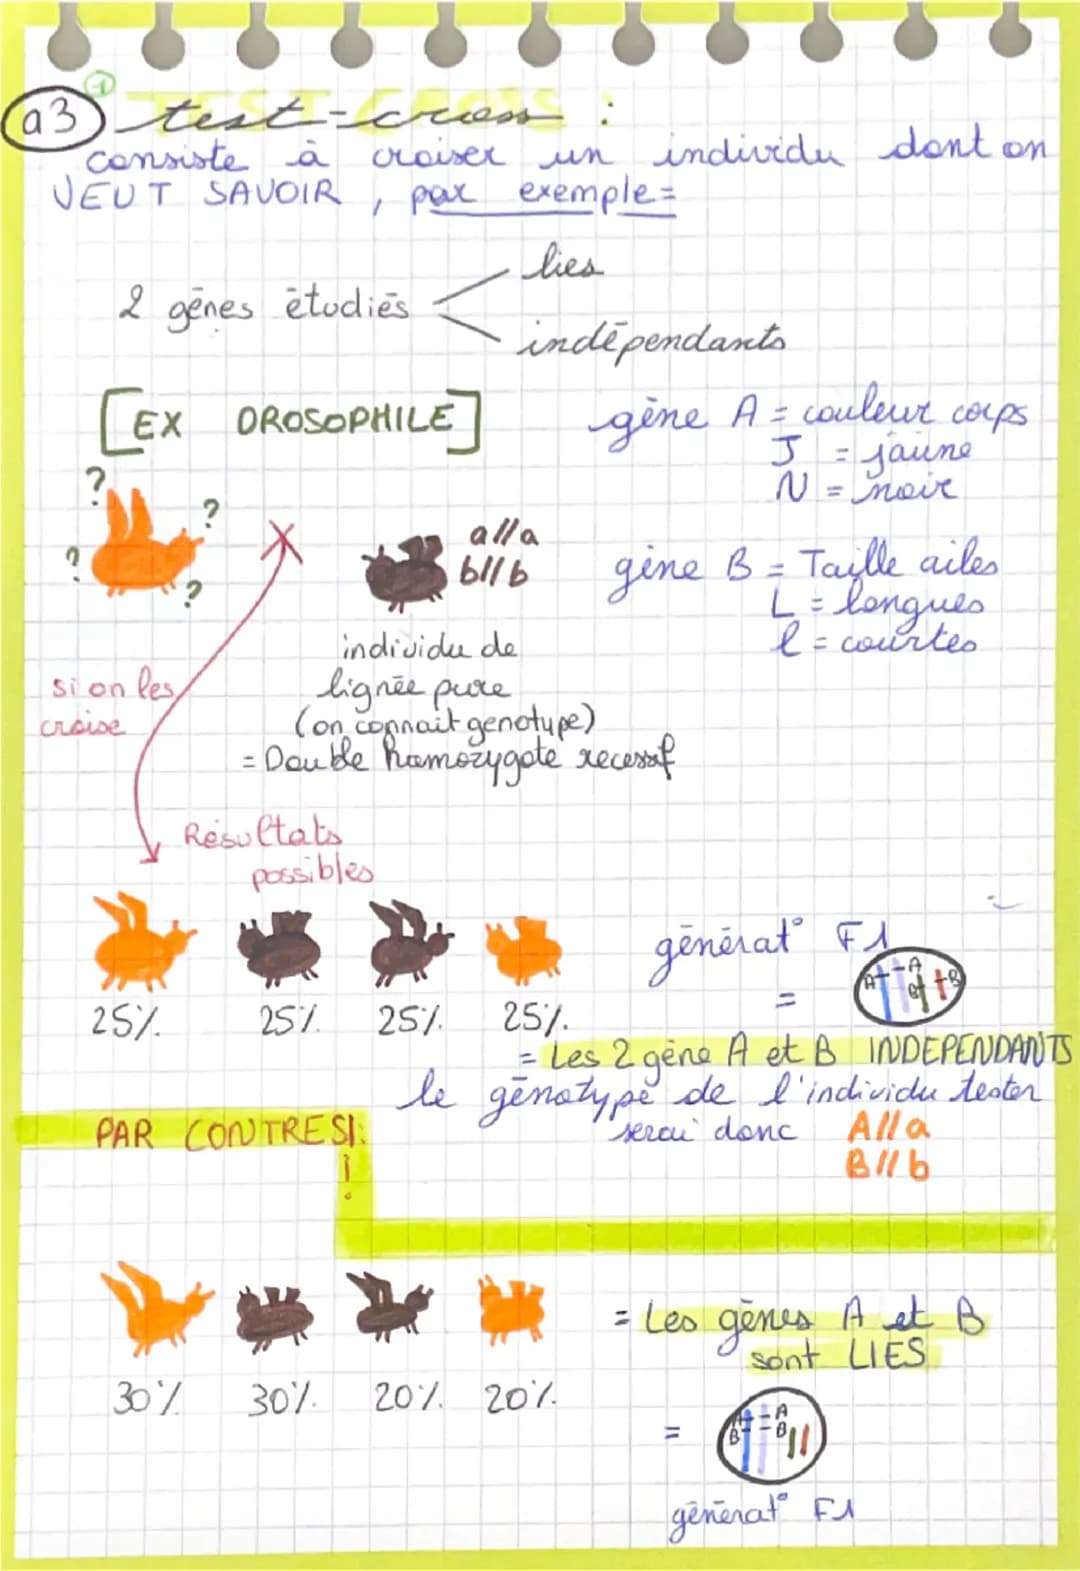 1
a3 test-cross :
consiste à croiser un individu dont on
VEUT SAVOIR , par exemple=
lies
2 gēnes ētudiēs
indēpendants
[EX DROSOPHILE]
gēne A = couleur corps
J = jaune
N = noir
? ? ? ?
a//a
b//b
gēne B = Taille ailes
L = longues
l = courtes
individu de
lignēe pure
(on connait genotype)
= Double homozygote recessif
si on les
croise
Rēsultats
possibles
gēnērat° F1
A A
B B
25% 25% 25% 25%
=
= Les 2 gēne A et B INDEPENDANTS
le gēnotype de l'individu tester
serai donc A//a
B//b
PAR CONTRE SI:
!
= Les gēnes A et B
sont LIES
30% 30% 20% 20%
=
A A
B B
gēnērat° F1